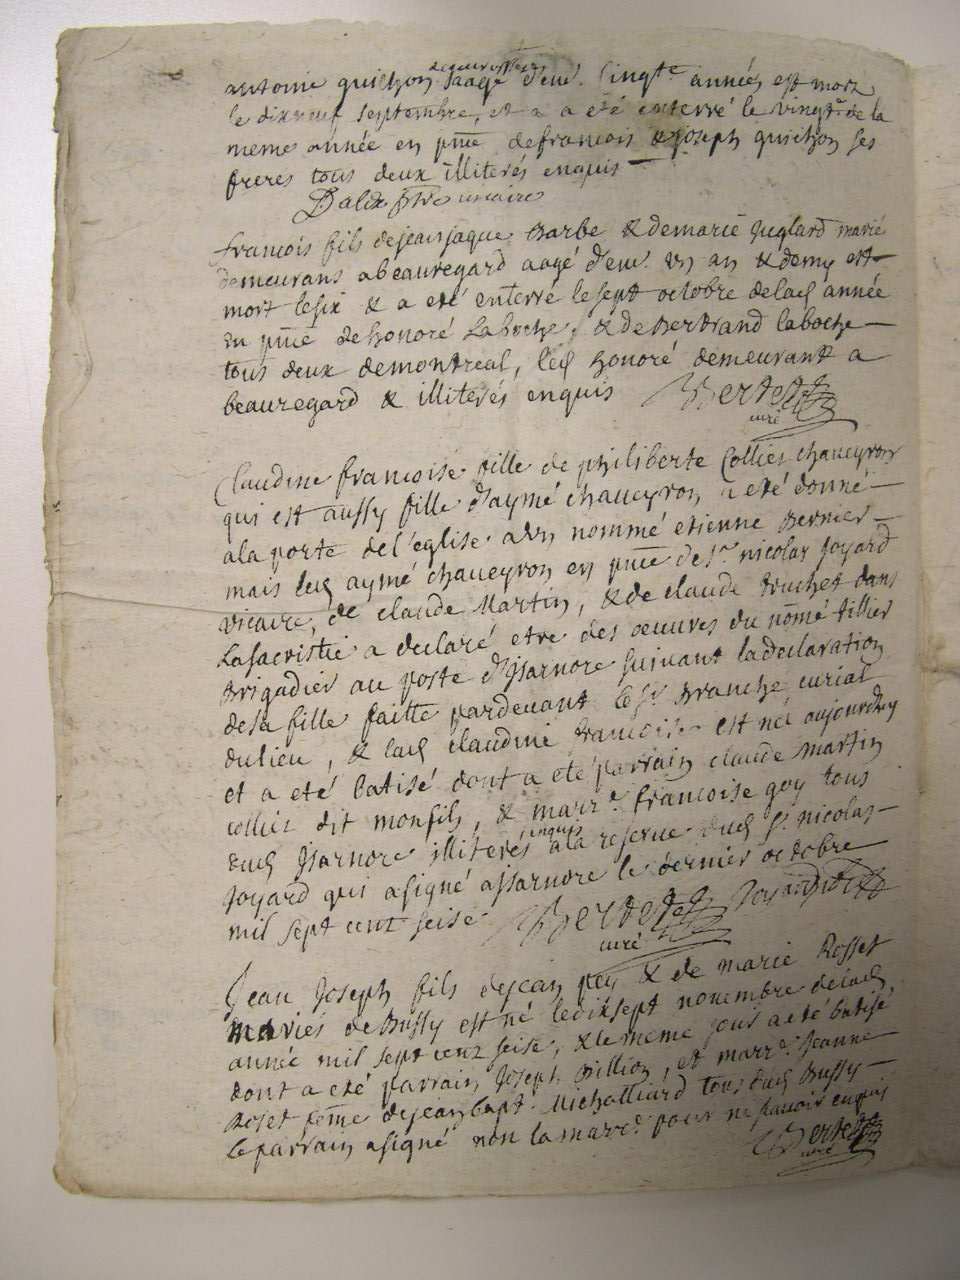 antoine guichon aagé d'env. cinqte années est mort
le dixneuf septembre, et a a eté enterré le vingt de la
meme année en pnce de francois & joseph guichon ses
freres tous deux illiterés enquis
Dalex ptre vicaire
francois fils de jean jaque Barbe & de marie Juglard mariés
demeurans a beauregard aagé d'env. un an & demy est
mort le six & a eté enterré le sept octobre de lad année
en pnce de honoré Laboche, & de Bertrand laboche
tous deux de montreal, led honoré demeurant a
beauregard & illiterés enquis Bertet
curé
Claudine francoise fille de philiberte Collier chaveyron
qui est aussy fille d'aymé chaveyron, a eté donné
a la porte de l'eglise a un nommé etienne Bernier
mais led aymé chaveyron en pnce de sr. nicolas Joyard
vicaire, de claude Martin, & de claude truchet dans
La sacristie a declaré etre des oeuvres du nomé tillier
Brigadier au poste d'Isarnore suivant la declaration
de sa fille faitte pardevant le sr. Branche curial
du lieu, & lad claudine francoise est née aujourdhuy
et a eté batisé dont a eté parrain claude martin
collier dit monfils, & marre. francoise goy tous
dud Isarnore illiterés enquis a la reserve dud sr. nicolas
Joyard qui a signé a Isarnore le dernier octobre
mil sept cent seise Bertet Joyard ptre
curé
Jean Joseph fils de jean pey & de marie Rosset
mariés de Bussy est né le dixsept novembre de lad
année mil sept cent seise, & le meme jour a eté batisé
dont a eté parrain Joseph Billion, et marre. Jeanne
Roset feme de jean bapt. Michalliard tous dud Bussy
le parrain a signé non la marre. pour ne sçavoir enquis
Bertet
curé